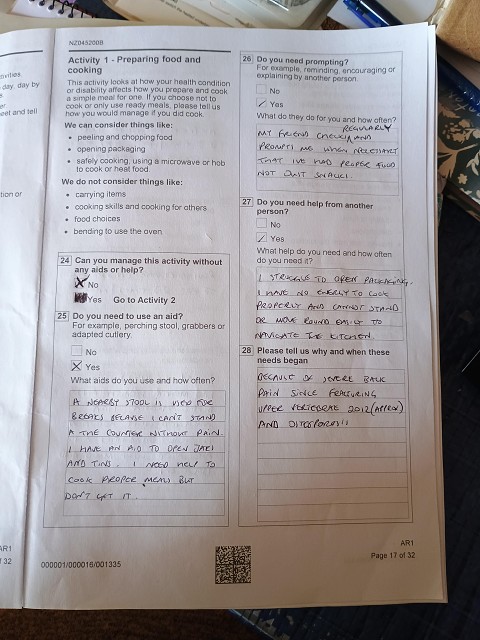 NZ045200B
Activity 1 - Preparing food and
cooking
This activity looks at how your health condition
or disability affects how you prepare and cook
a simple meal for one. If you choose not to
cook or only use ready meals, please tell us
how you would manage if you did cook.
We can consider things like:
• peeling and chopping food
• opening packaging
• safely cooking, using a microwave or hob
to cook or heat food.
We do not consider things like:
• carrying items
• cooking skills and cooking for others
• food choices
• bending to use the oven
24 Can you manage this activity without
any aids or help?
No
Yes Go to Activity 2
25 Do you need to use an aid?
For example, perching stool, grabbers or
adapted cutlery.
No
Yes
What aids do you use and how often?
A NEARBY STOOL IS USED FOR
BREAKS BECAUSE I CAN'T STAND
A THE COUNTER WITHOUT PAIN.
I HAVE AN AID TO OPEN JARS
AND TINS. I NEED HELP TO
COOK PROPER MEALS BUT
DON'T GET IT.
26 Do you need prompting?
For example, reminding, encouraging or
explaining by another person.
No
Yes
What do they do for you and how often?
REGULARLY
MY FRIEND CHECKS AND
PROMPTS ME WHEN NECESSARY
THAT I'VE HAD PROPER FOOD
NOT JUST SNACKS.
27 Do you need help from another
person?
No
Yes
What help do you need and how often
do you need it?
I STRUGGLE TO OPEN PACKAGING,
I HAVE NO ENERGY TO COOK
PROPERLY AND CANNOT STAND
OR MOVE ROUND EASILY TO
NAVIGATE THE KITCHEN.
28 Please tell us why and when these
needs began
BECAUSE OF SEVERE BACK
PAIN SINCE FRACTURING
UPPER VERTEBRAE 2012 (APPROX)
AND OSTEOPOROSIS
AR1
Page 17 of 32
000001/000016/001335